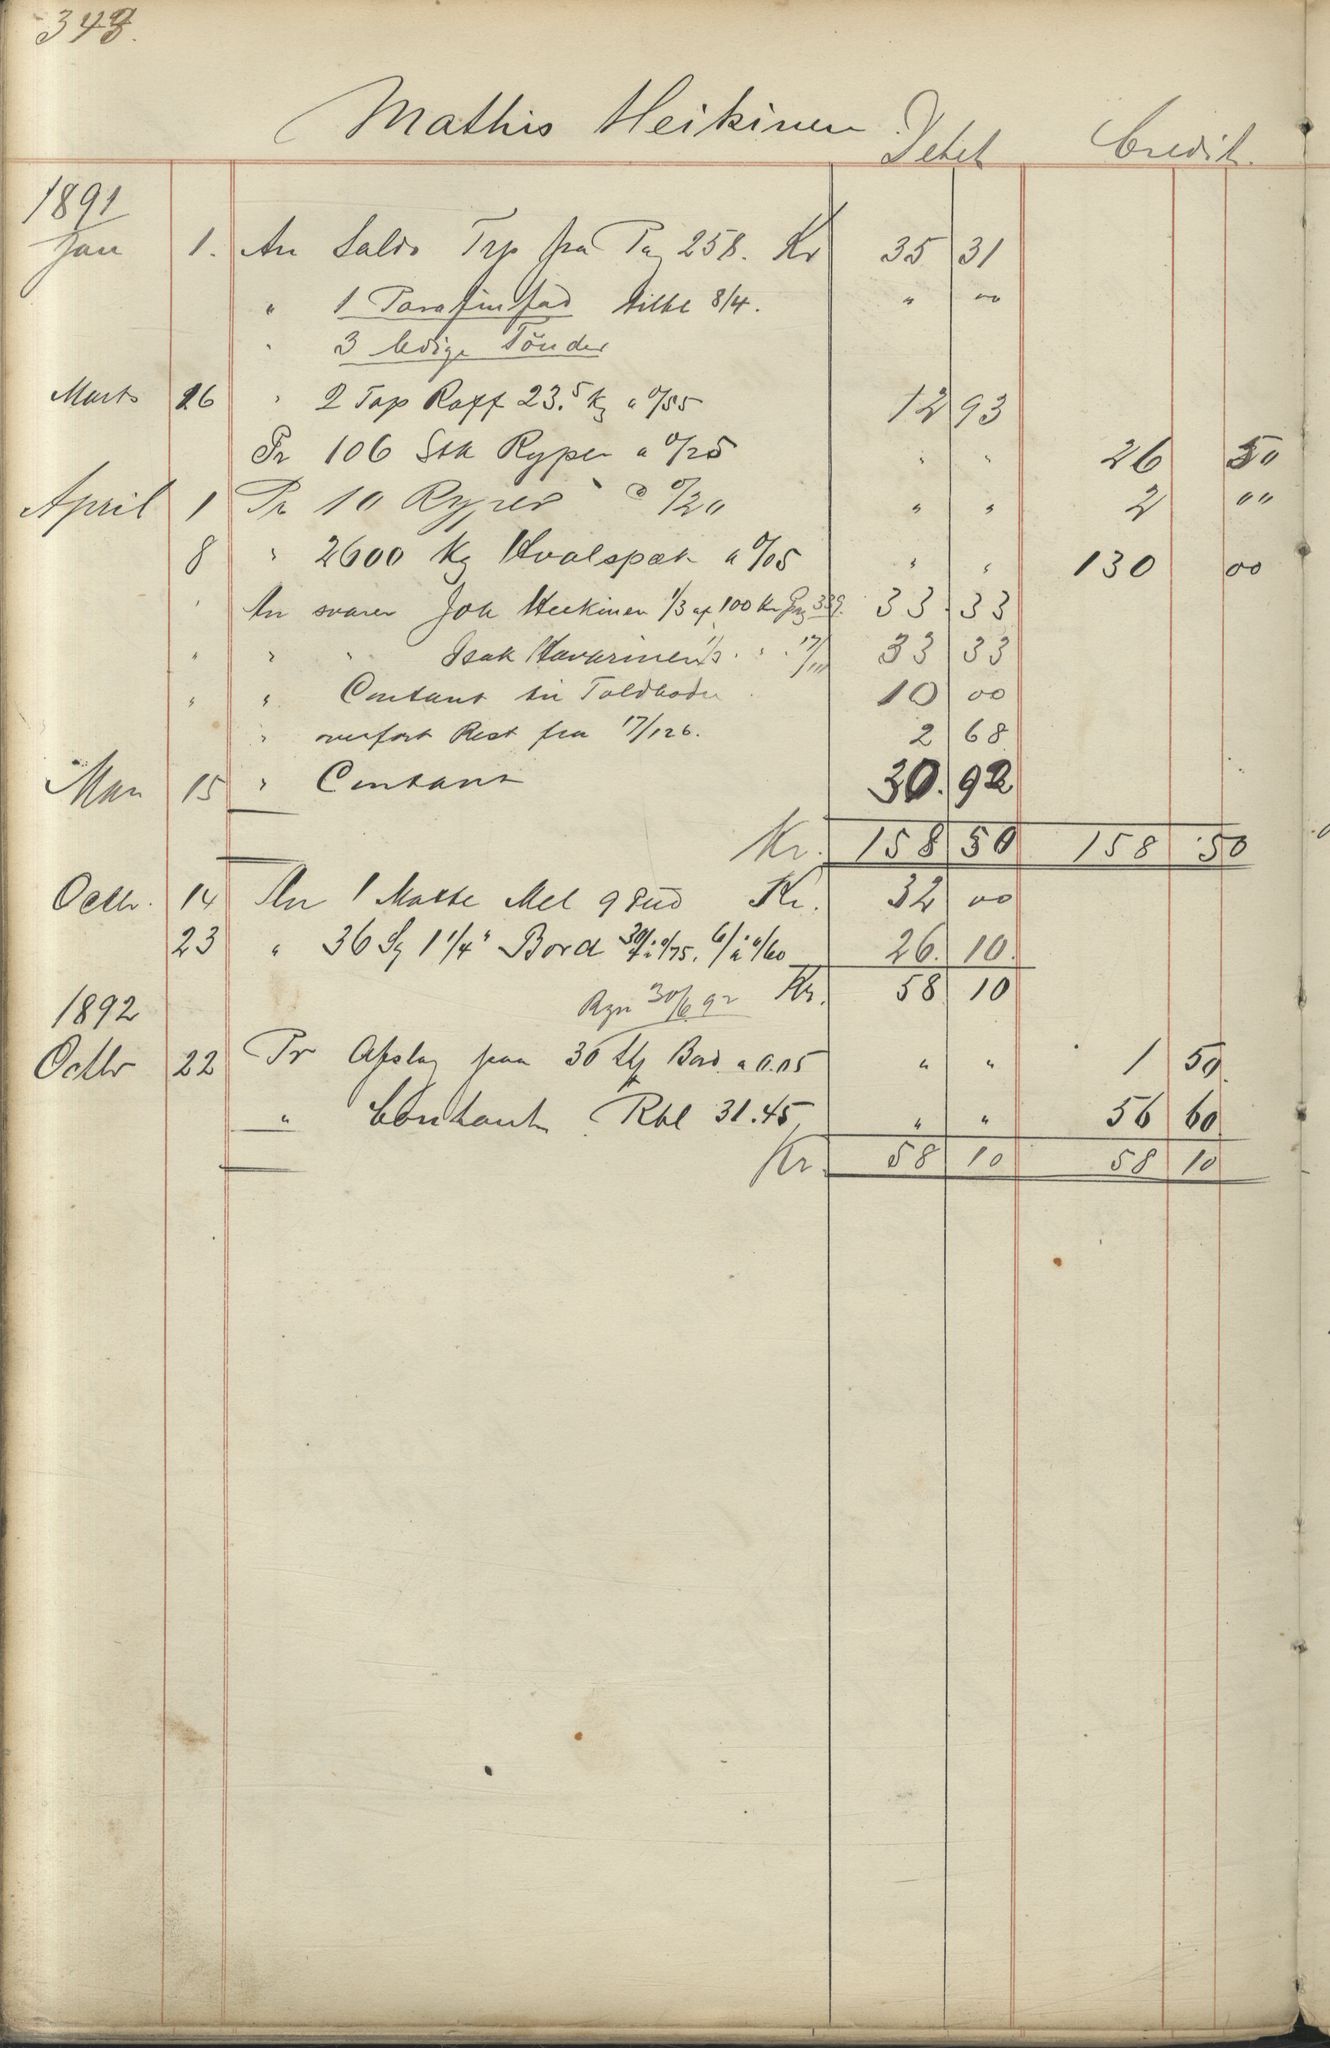 Mathis Heikinen Debet Credit.
1891
Jan 1. An Saldo Trp fra Pag 258. Kr 35 31
" 1 Parafinfad tilbl 8/4. " 00
" 3 ledige Tönder
Marts 26 " 2 Top Raff 23.5 Kg a 0/55 12 93
Pr 106 Stk Ryper a 0/25 " " 26 50
April 1 Pr 10 Ryper a 0/20 " " 2 ""
8 " 2600 Kg Hvalspæk a 0/05 " " 130 00
" An svarer Joh Heikinen 1/3 af 100 Kr Pag 339. 33.33
" " " Isak Havarinen 1/3 " " 17/111 33 33
" " Contant til Toldbode 10 00
" overfört Rest fra 17/126. 2 68
Mai 15 " Contant 30.92
Kr. 158 50 158 50
Octbr. 14 An 1 Matte Mel 9 Pud Kr. 32 00
23 " 36 1 1/4" Bord 30/ a 0/75. 6/ a 0/60 26. 10.
Kr. 58 10
1892 Rgn 30/6 92
Octbr 22 Pr Afslag paa 30 Bord a 0.05 " " 1 50.
" Contant Rbl 31.45 " " 56 60
Kr. 58 10 58 10